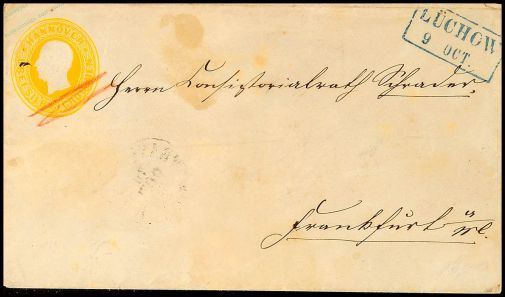 HANNOVER
LÜCHOW
9 OCT.
Herrn Consistorialrath Schrader.
Frankfurt a/M.